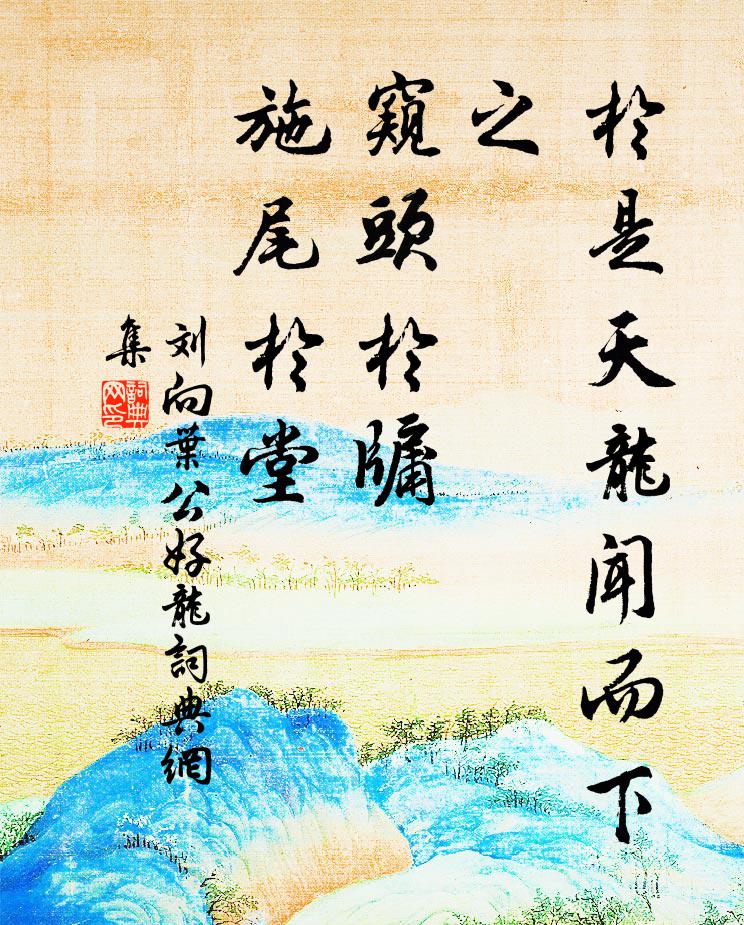 於是天龍聞而下
之
窺頭於牖
施尾於堂
刘向葉公好龍詞典網
集
詞典
网印